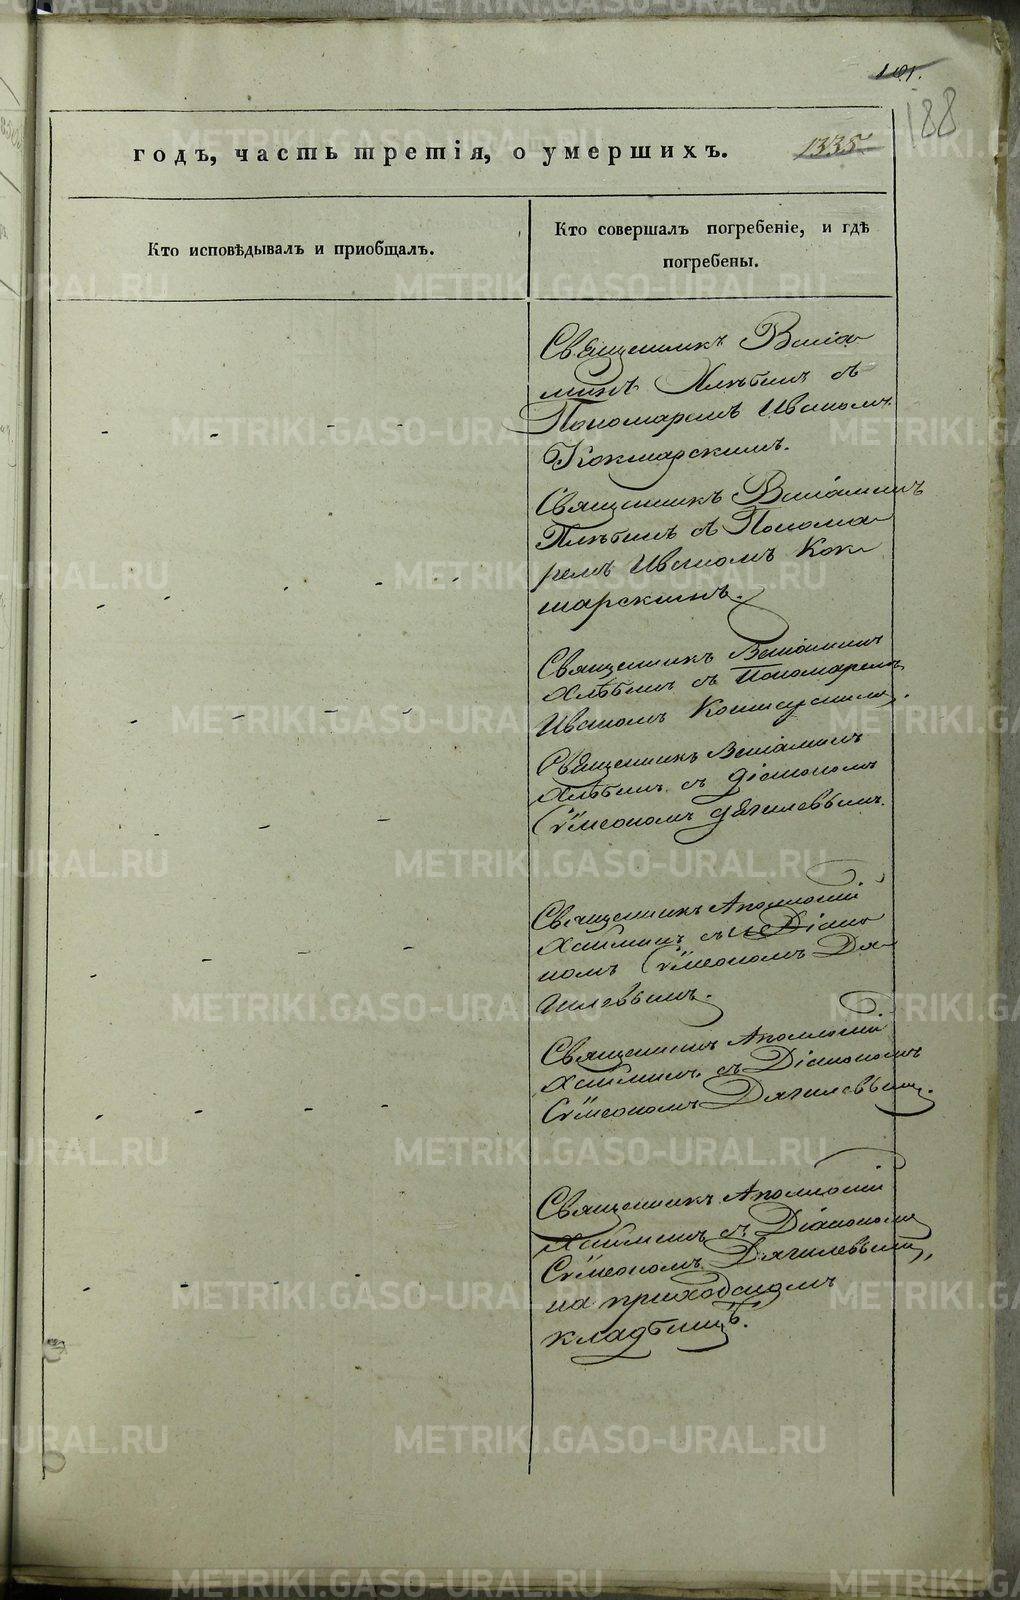 101.
188
годъ, часть третія, о умершихъ.
1335
Кто исповѣдывалъ и приобщалъ.
Кто совершалъ погребеніе, и гдѣ
погребены.
Священникъ Веніа
минъ Хлѣбинъ съ
Пономаремъ Иваномъ
Кокшарскимъ.
Священникъ Веніаминъ
Хлѣбинъ съ Понома
ремъ Иваномъ Кок
шарскимъ.
Священникъ Веніаминъ
Хлѣбинъ съ Пономаремъ
Иваномъ
Священникъ Веніаминъ
Хлѣбинъ съ Діакономъ
Сѵмеономъ Дягилевымъ.
Священникъ Аполлоній
съ Діако
номъ Сѵмеономъ Дя
гилевымъ.
Священникъ Аполлоній
съ Діакономъ
Сѵмеономъ Дягилевымъ.
Священникъ Аполлоній
съ Діакономъ
Сѵмеономъ Дягилевымъ,
на приходскомъ
кладбищѣ.
METRIKI.GASO-URAL.RU